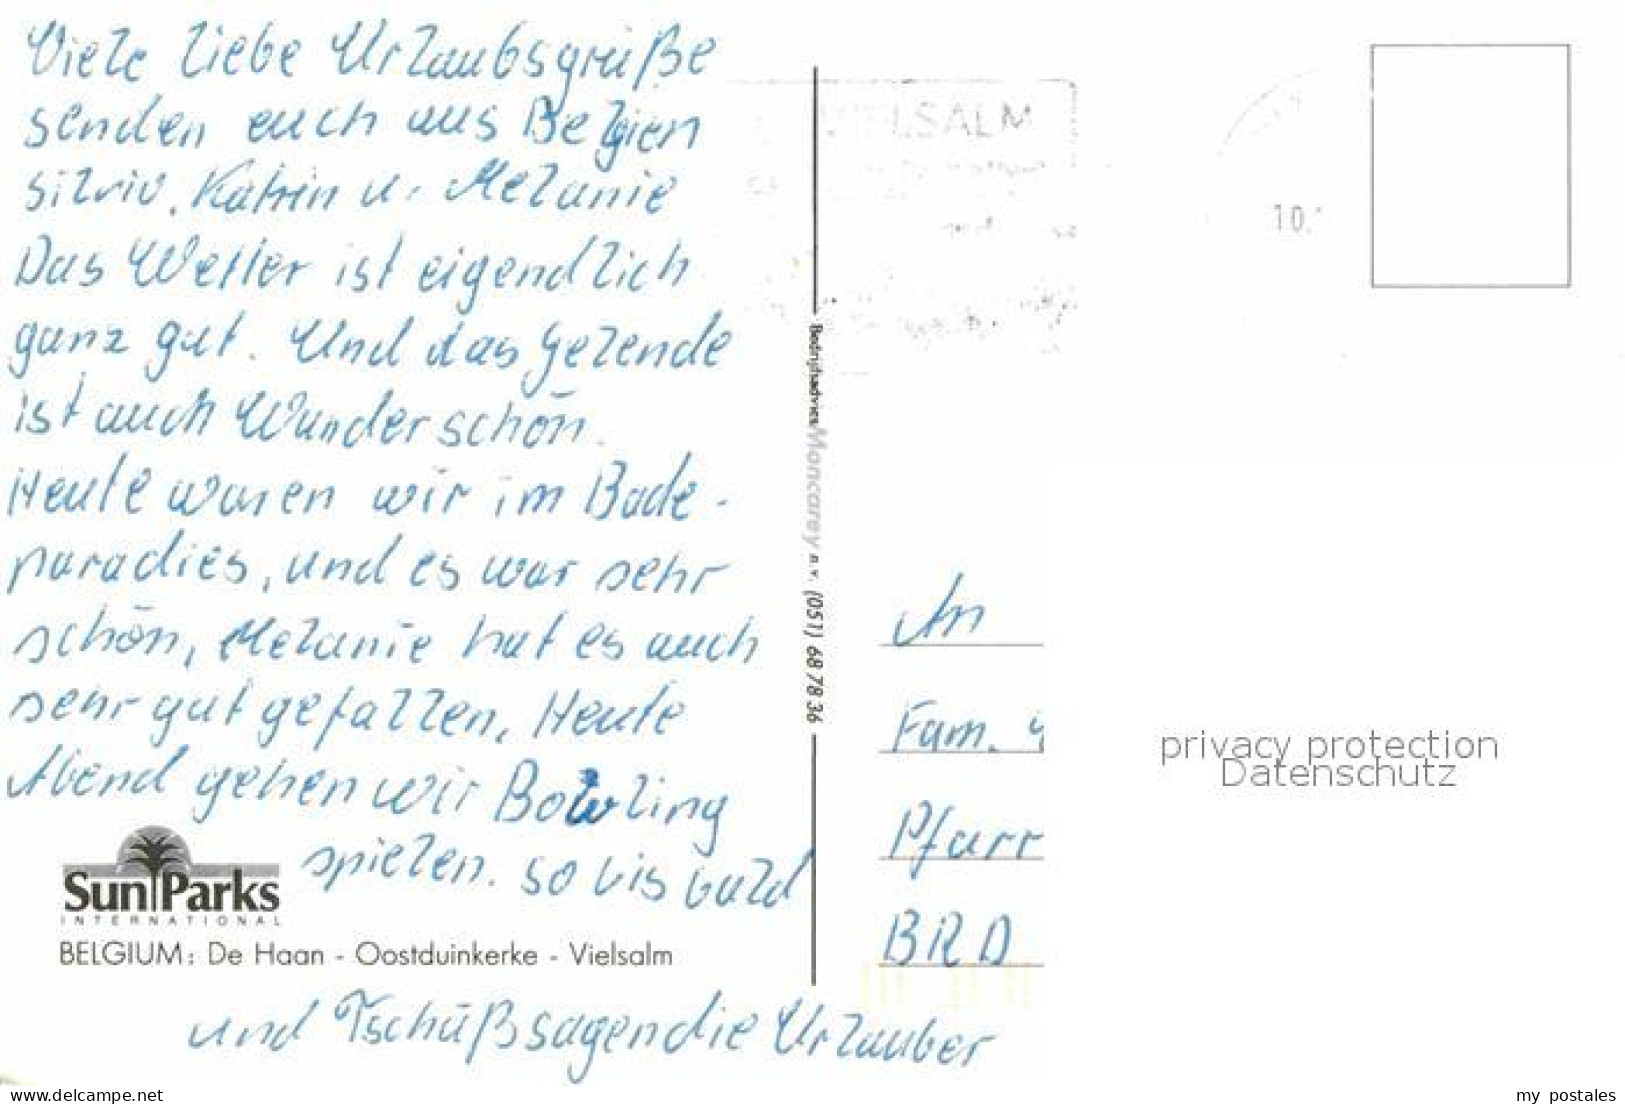 Viele liebe Urlaubsgrüße
senden euch aus Belgien
Silvio, Katrin u. Melanie
Das Wetter ist eigendlich
ganz gut. Und das Gelende
ist auch Wunderschön.
Heute waren wir im Bade-
paradies, und es war sehr
schön, Melanie hat es auch
sehr gut gefallen, Heute
Abend gehen wir Bowling
spielen. so bis bald
und Tschüß sagen die Urlauber
Sun Parks
INTERNATIONAL
BELGIUM: De Haan - Oostduinkerke - Vielsalm
Bedrijfsadvies Moncarey n.v. (051) 68 78 36
VIELSALM
10.
An
Fam.
Pfarr
BRD
privacy protection
Datenschutz
www.delcampe.net
my_postales